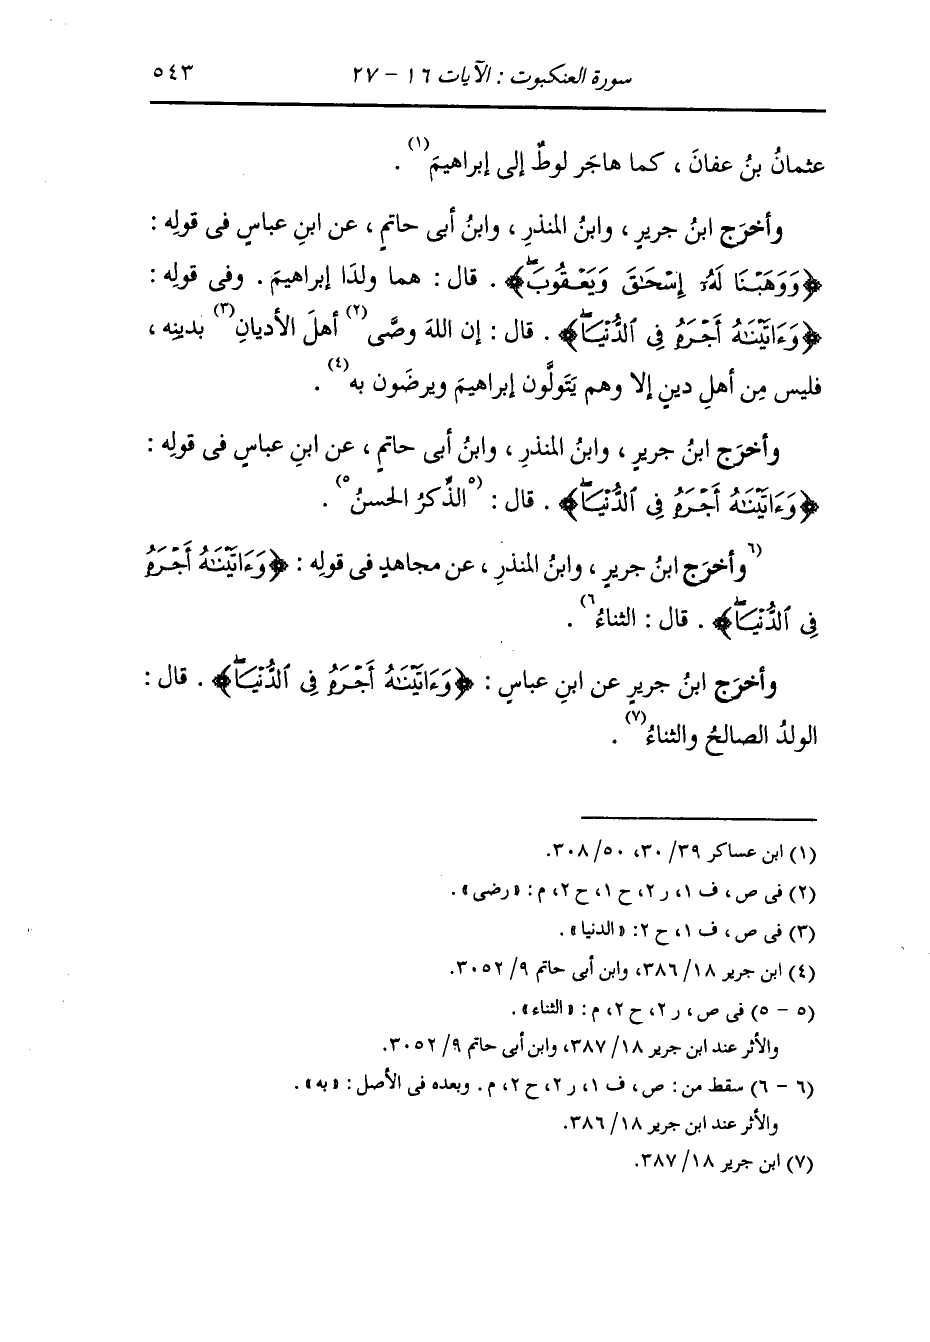 سورة العنكبوت : الآيات ١٦ - ٢٧ ٥٤٣
عثمانُ بنُ عفانَ ، كما هاجَر لوطٌ إلى إبراهيمَ(١) .
وأخرَج ابنُ جريرٍ ، وابنُ المنذرِ ، وابنُ أبى حاتمٍ ، عن ابنِ عباسٍ فى قولِه :
﴿وَوَهَبْنَا لَهُۥٓ إِسْحَٰقَ وَيَعْقُوبَۖ﴾ . قال : هما ولدَا إبراهيمَ . وفى قولِه :
﴿وَءَاتَيْنَٰهُ أَجْرَهُۥ فِى ٱلدُّنْيَاۖ﴾ . قال : إن اللهَ وصَّى(٢) أهلَ الأديانِ(٣) بدينِه ،
فليس مِن أهلِ دينٍ إلا وهم يَتَولَّون إبراهيمَ ويرضَون به(٤) .
وأخرَج ابنُ جريرٍ ، وابنُ المنذرِ ، وابنُ أبى حاتمٍ ، عن ابنِ عباسٍ فى قولِه :
﴿وَءَاتَيْنَٰهُ أَجْرَهُۥ فِى ٱلدُّنْيَاۖ﴾ . قال : (٥الذِّكرُ الحسنُ٥) .
(٦وأخرَج ابنُ جريرٍ ، وابنُ المنذرِ ، عن مجاهدٍ فى قولِه : ﴿وَءَاتَيْنَٰهُ أَجْرَهُۥ
فِى ٱلدُّنْيَاۖ﴾ . قال : الثناءُ٦) .
وأخرَج ابنُ جريرٍ عن ابنِ عباسٍ : ﴿وَءَاتَيْنَٰهُ أَجْرَهُۥ فِى ٱلدُّنْيَاۖ﴾ . قال :
الولدُ الصالحُ والثناءُ(٧) .
(١) ابن عساكر ٣٩/ ٣٠، ٥٠/ ٣٠٨.
(٢) فى ص، ف ١، ر ٢، ح ١، ح ٢، م : «رضى» .
(٣) فى ص، ف ١، ح ٢: «الدنيا» .
(٤) ابن جرير ١٨/ ٣٨٦، وابن أبى حاتم ٩/ ٣٠٥٢.
(٥ - ٥) فى ص، ر ٢، ح ٢، م : «الثناء» .
والأثر عند ابن جرير ١٨/ ٣٨٧، وابن أبى حاتم ٩/ ٣٠٥٢.
(٦ - ٦) سقط من : ص، ف ١، ر ٢، ح ٢، م . وبعده فى الأصل : «به» .
والأثر عند ابن جرير ١٨/ ٣٨٦.
(٧) ابن جرير ١٨/ ٣٨٧.